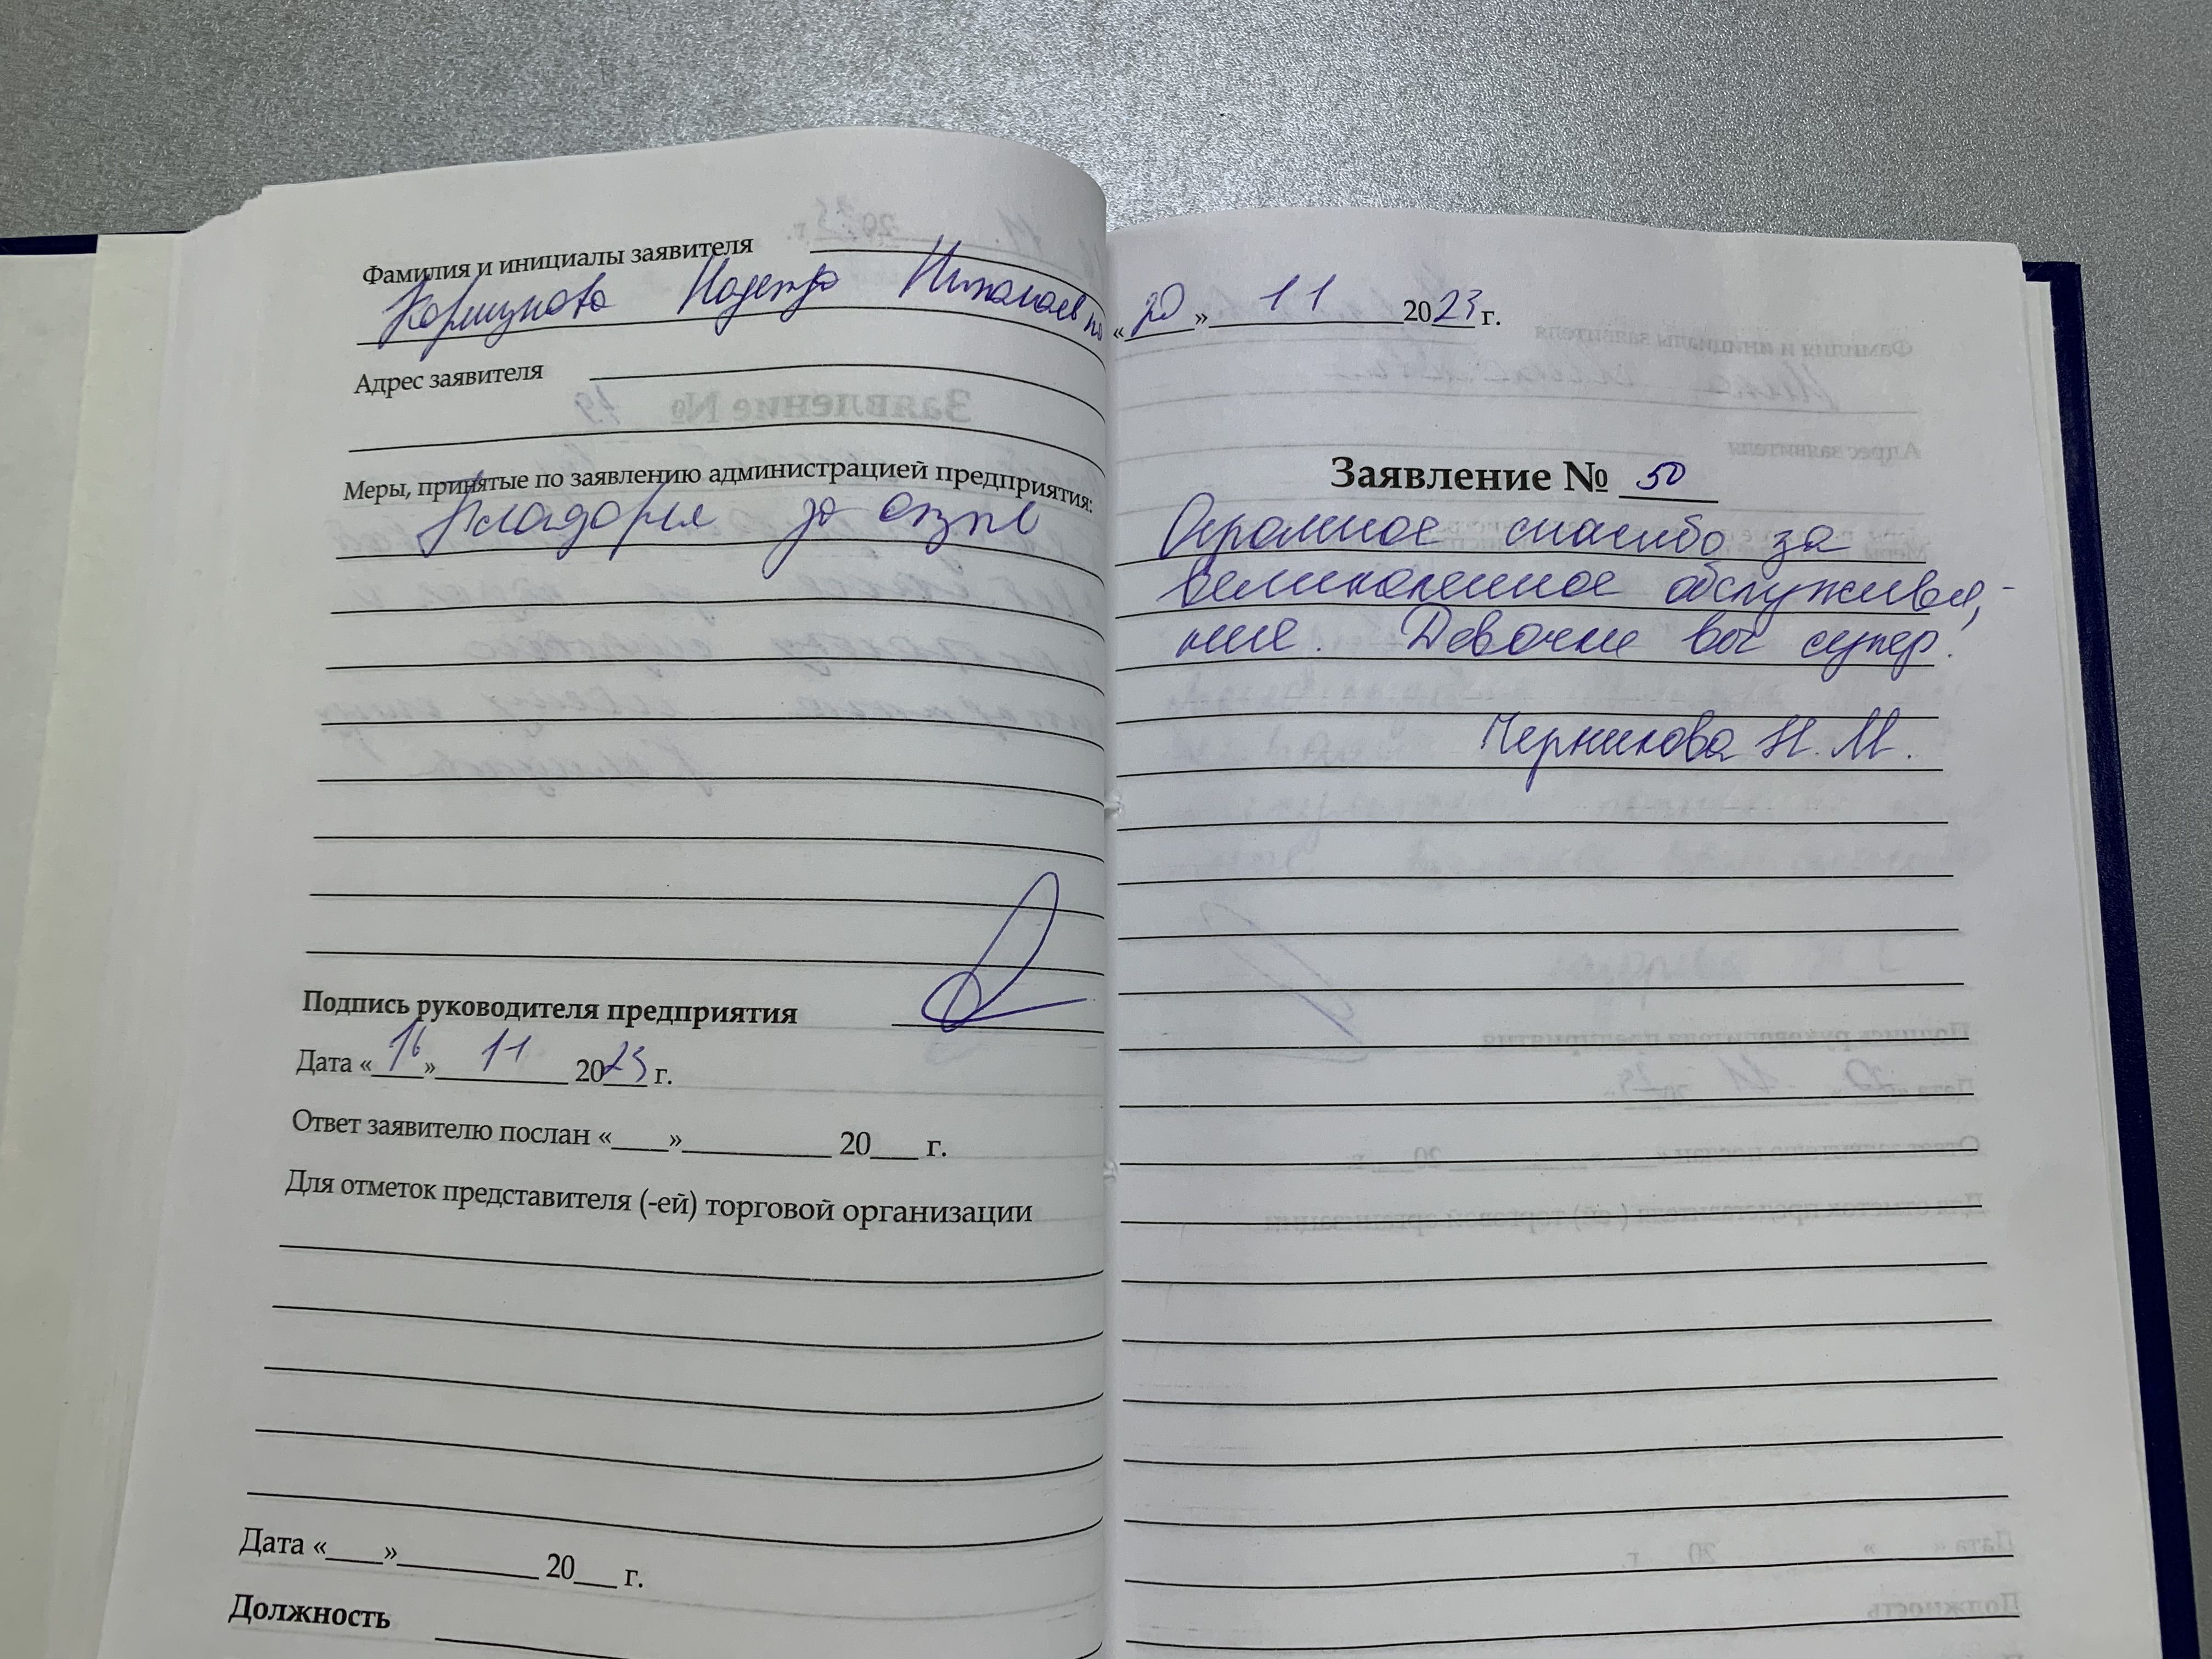 Фамилия и инициалы заявителя
Коршунова Надежда Николаевна
Адрес заявителя
Меры, принятые по заявлению администрацией предприятия:
за отзыв
Подпись руководителя предприятия
Дата «16» 11 2023 г.
Ответ заявителю послан «____»__________ 20___ г.
Для отметок представителя (-ей) торговой организации
Дата «____»__________ 20___ г.
Должность
«20» 11 2023 г.
Заявление № 50
Огромное спасибо за
великолепное обслужива,-
ние. Девочки вы супер!
Черникова Н. М.